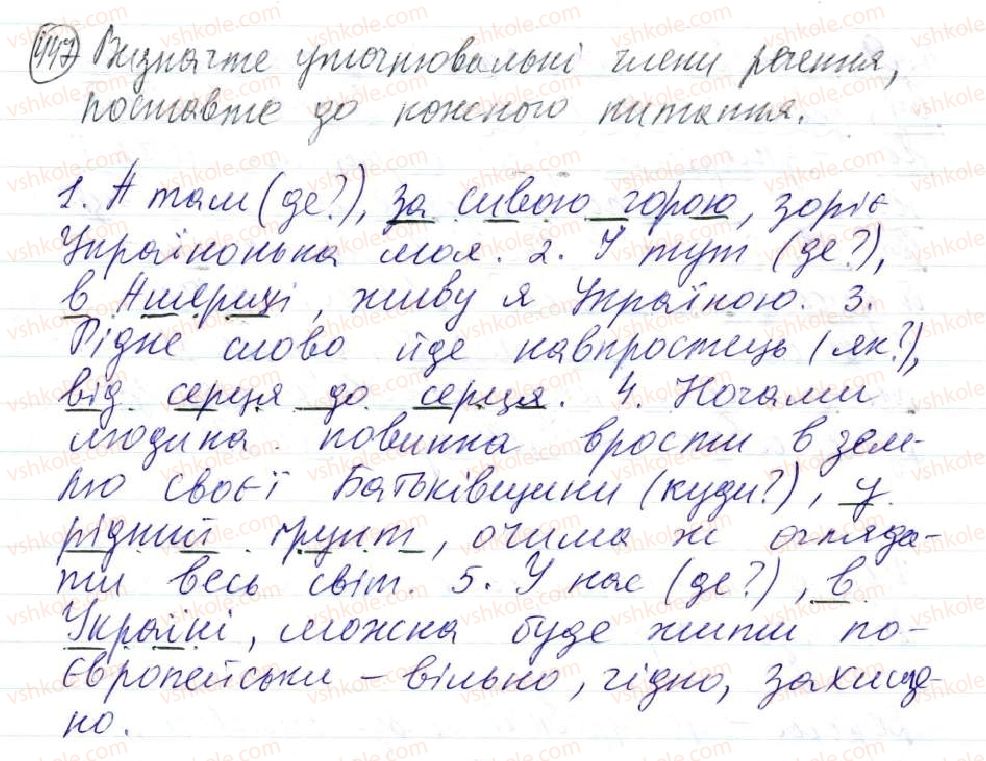 447 Визначте уточнювальні члени речення,
поставте до кожного питання.
1. А там (де?), за сивою горою, зоріє
Україночька моя. 2. І тут (де?),
в Америці, живу я Україною. 3.
Рідне слово йде навпростець (як?),
від серця до серця. 4. Ногами
людина повинна врости в зем-
лю своєї Батьківщини (куди?), у
рідний ґрунт, очима ж огляда-
ти весь світ. 5. У нас (де?), в
Україні, можна буде жити по-
європейськи – вільно, гідно, захище-
но.